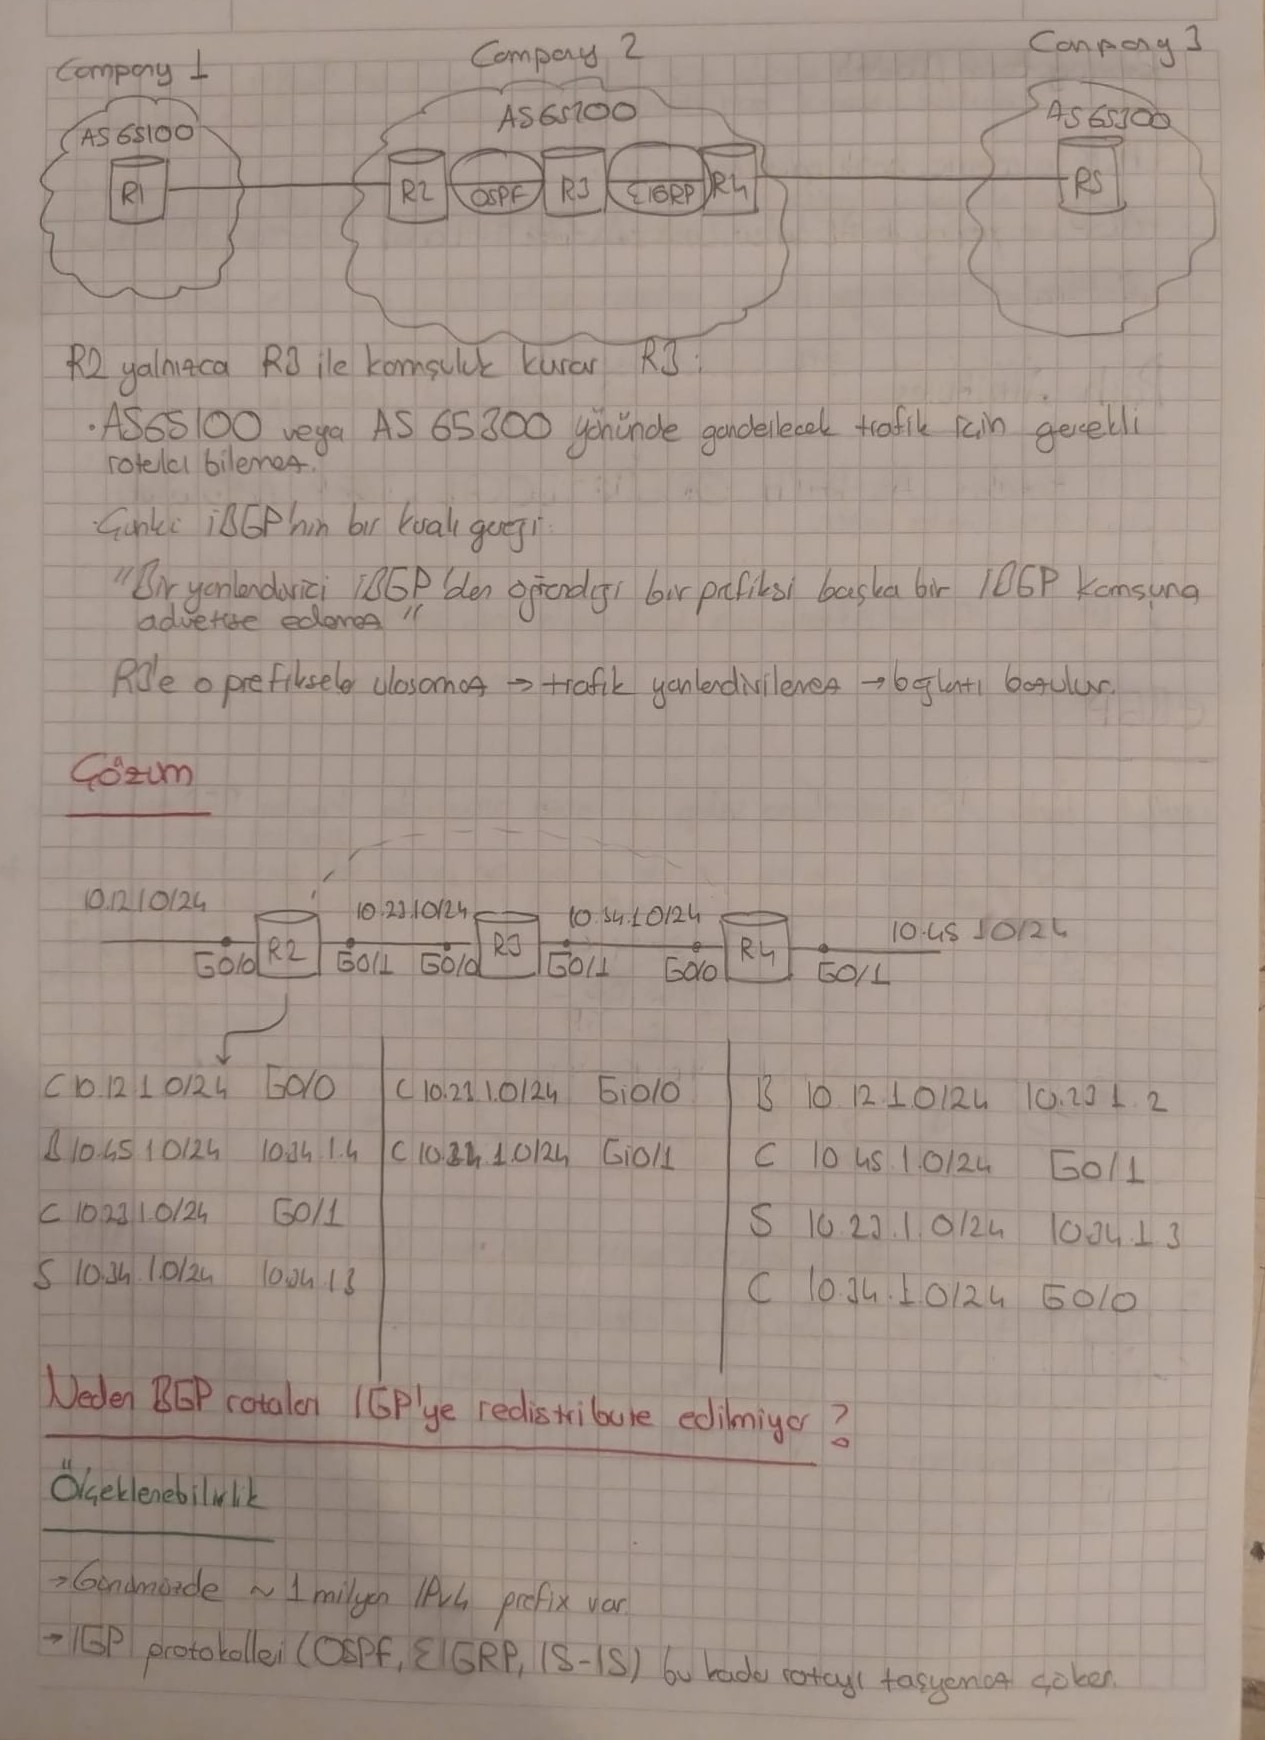 Company 1
Company 2
Company 3
AS 65100
AS 65200
AS 65300
R1
R2
OSPF
R3
EIGRP
R4
R5
R2 yalnızca R3 ile komşuluk kurar R3:
· AS65100 veya AS 65300 yönünde gönderilecek trafik için gerekli
rotaları bilemez.
· Çünkü iBGP'nin bir kuralı gereği:
"Bir yönlendirici iBGP'den öğrendiği bir prefiksi başka bir iBGP komşuna
advertise edemez"
R3'e o prefiksele ulaşamaz → trafik yönlendirilemez → bağlantı bozulur.
Çözüm
10.12.1.0/24
10.23.1.0/24
10.34.1.0/24
10.45.1.0/24
R2
R3
R4
G0/0
G0/1
G0/0
G0/1
G0/0
G0/1
C 10.12.1.0/24 G0/0
B 10.45.1.0/24 10.34.1.4
C 10.23.1.0/24 G0/1
S 10.34.1.0/24 10.34.1.3
C 10.23.1.0/24 Gi0/0
C 10.34.1.0/24 Gi0/1
B 10.12.1.0/24 10.23.1.2
C 10.45.1.0/24 G0/1
S 10.23.1.0/24 10.34.1.3
C 10.34.1.0/24 G0/0
Neden BGP rotaları IGP'ye redistribute edilmiyor?
Ölçeklenebilirlik
→ Günümüzde ~ 1 milyon IPv4 prefix var.
→ IGP protokolleri (OSPF, EIGRP, IS-IS) bu kadar rotayı taşıyamaz çöker.